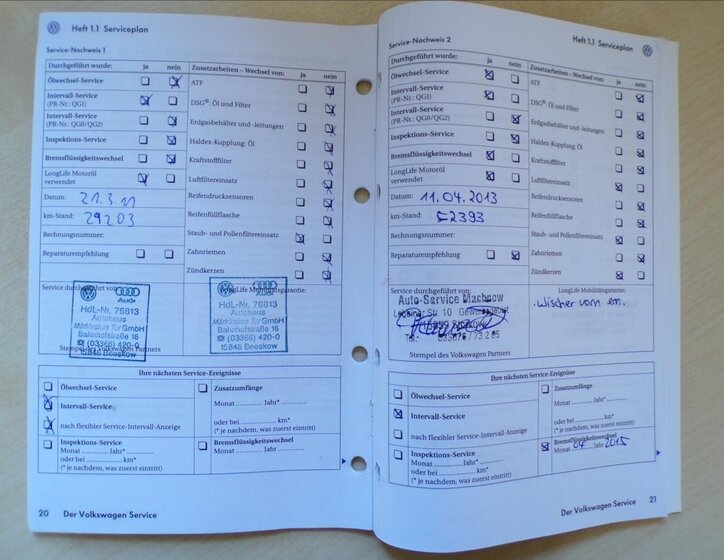 Heft 1.1 Serviceplan
Service-Nachweis 1
Durchgeführt wurde: ja nein
Ölwechsel-Service
Intervall-Service
(PR-Nr.: QG1)
Intervall-Service
(PR-Nr.: QG0/QG2)
Inspektions-Service
Bremsflüssigkeitswechsel
LongLife Motoröl
verwendet
Datum: 21.3.11
km-Stand: 29203
Rechnungsnummer:
Reparaturempfehlung
Zusatzarbeiten – Wechsel von: ja nein
ATF
DSG®: Öl und Filter
Erdgasbehälter und -leitungen
Haldex-Kupplung: Öl
Kraftstofffilter
Luftfiltereinsatz
Reifendrucksensoren
Reifenfüllflasche
Staub- und Pollenfiltereinsatz
Zahnriemen
Zündkerzen
Service durchgeführt von:
Audi
HdL-Nr. 76813
Autohaus
Märkisches Tor GmbH
Bahnhofstraße 16
(03366) 420-0
15848 Beeskow
Stempel des Volkswagen Partners
LongLife Mobilitätsgarantie:
Audi
HdL-Nr. 76813
Autohaus
Märkisches Tor GmbH
Bahnhofstraße 16
(03366) 420-0
15848 Beeskow
Ihre nächsten Service-Ereignisse
Ölwechsel-Service
Intervall-Service
nach flexibler Service-Intervall-Anzeige
Inspektions-Service
Monat Jahr*
oder bei km*
(* je nachdem, was zuerst eintritt)
Zusatzumfänge
Monat Jahr*
oder bei km*
(* je nachdem, was zuerst eintritt)
Bremsflüssigkeitswechsel
Monat Jahr
20 Der Volkswagen Service
Heft 1.1 Serviceplan
Service-Nachweis 2
Durchgeführt wurde: ja nein
Ölwechsel-Service
Intervall-Service
(PR-Nr.: QG1)
Intervall-Service
(PR-Nr.: QG0/QG2)
Inspektions-Service
Bremsflüssigkeitswechsel
LongLife Motoröl
verwendet
Datum: 11.04.2013
km-Stand: 2393
Rechnungsnummer:
Reparaturempfehlung
Zusatzarbeiten – Wechsel von: ja nein
ATF
DSG®: Öl und Filter
Erdgasbehälter und -leitungen
Haldex-Kupplung: Öl
Kraftstofffilter
Luftfiltereinsatz
Reifendrucksensoren
Reifenfüllflasche
Staub- und Pollenfiltereinsatz
Zahnriemen
Zündkerzen
Service durchgeführt von:
Auto-Service Machnow
Str. 10
Tel.:
Stempel des Volkswagen Partners
LongLife Mobilitätsgarantie:
Wischer vorn
Ihre nächsten Service-Ereignisse
Ölwechsel-Service
Intervall-Service
nach flexibler Service-Intervall-Anzeige
Inspektions-Service
Monat Jahr*
oder bei km*
(* je nachdem, was zuerst eintritt)
Zusatzumfänge
Monat Jahr*
oder bei km*
(* je nachdem, was zuerst eintritt)
Bremsflüssigkeitswechsel
Monat 04 Jahr 2015
Der Volkswagen Service 21